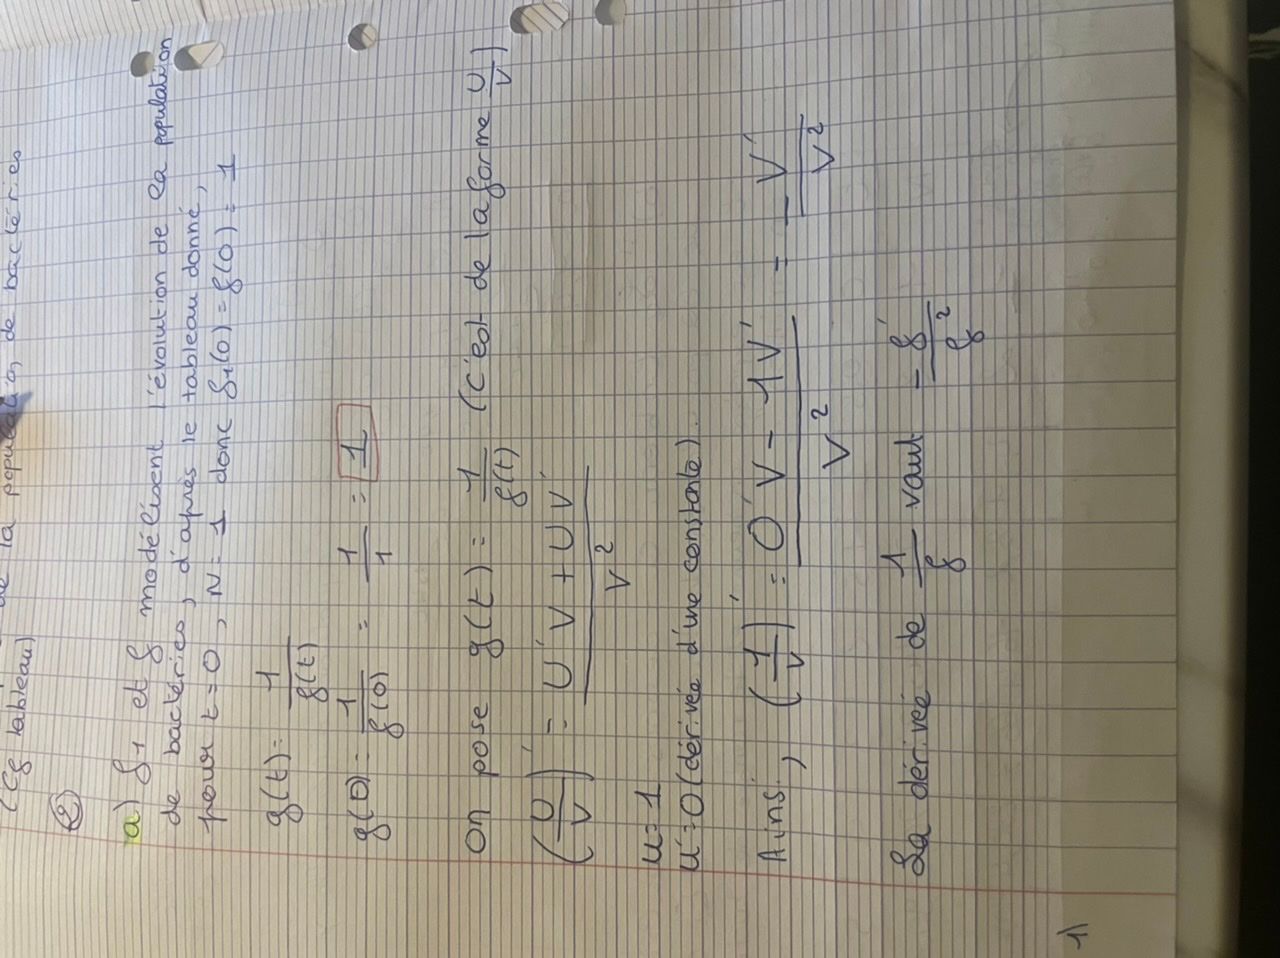 (cf tableau)
de la population de bactéries
②
a) f₁ et f modélisent l'évolution de la population
de bactéries, d'après le tableau donné,
pour t=0, N=1 donc f₁(0)=f(0)=1
g(t)=1/f(t)
g(0)=1/f(0) = 1/1 = 1
On pose g(t)=1/f(t) (c'est de la forme U/V)
(U/V)' = U'V+UV'/V²
u=1
u'=0 (dérivée d'une constante).
Ainsi, (1/V)' = 0'V-1V'/V² = -V'/V²
La dérivée de 1/f vaut -f'/f²
1)